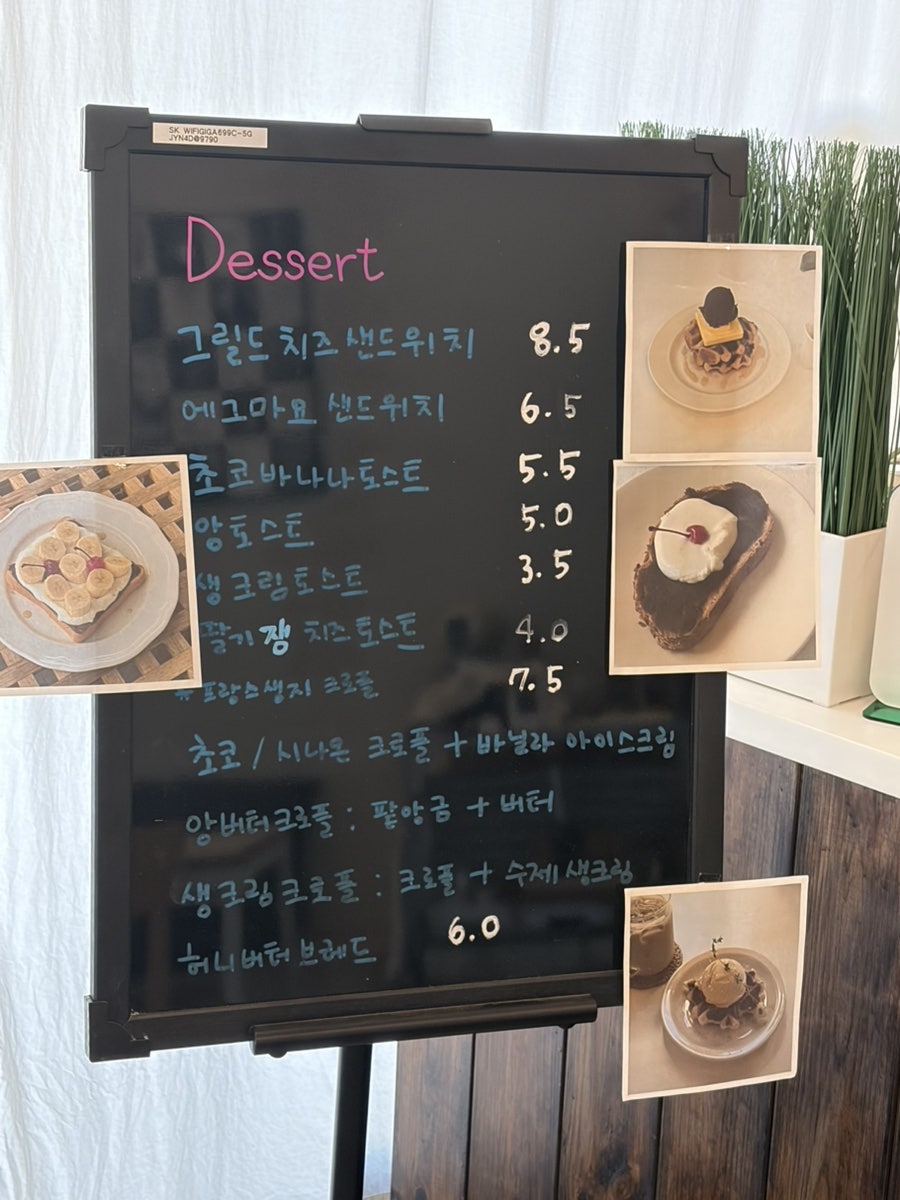 SK_WIFIGIGA699C-5G
JYN4D@9790
Dessert
그릴드 치즈 샌드위치 8.5
에그마요 샌드위치 6.5
초코바나나토스트 5.5
앙토스트 5.0
생크림토스트 3.5
딸기잼 치즈토스트 4.0
프랑스생지 크로플 7.5
초코 / 시나몬 크로플 + 바닐라 아이스크림
앙버터크로플 : 팥앙금 + 버터
생크림크로플 : 크로플 + 수제생크림
허니버터브레드 6.0